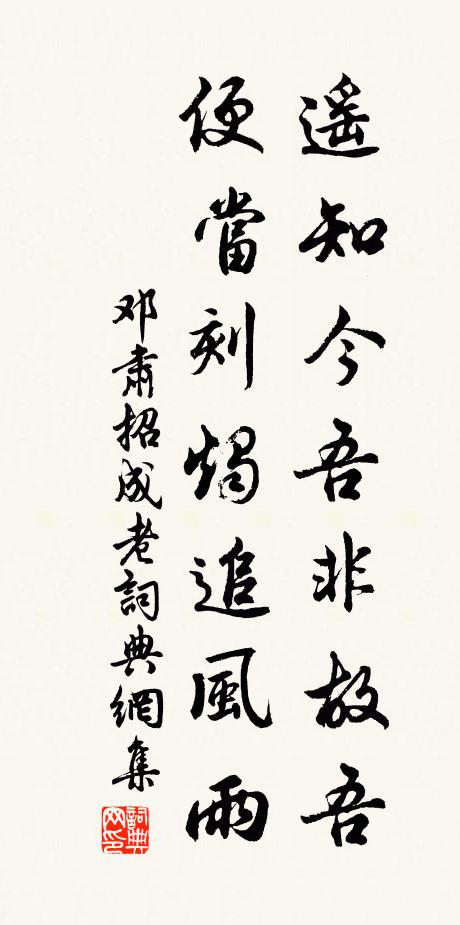 遥知今吾非故吾
便當刻燭追風雨
邓肅招成老詞典網集
詞典网印